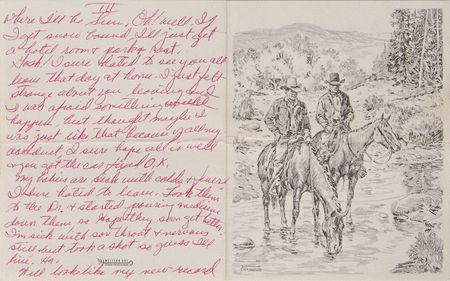 III
where I'll be Sun, Oh! well, If
I get snow bound I'll just get
a hotel room & park & rest.
Gosh! I sure hated to see you all
leave that day at home. I just felt
strange about you leaving and
I was afraid something would
happen. but thought maybe I
was just like that because of all my
accident. I sure hope all is well
& you got the car fixed O.K.
My babies are sick with colds & fever
I sure hated to leave. Took them
to the Dr. & started pouring medicine
down them so hope they soon get better.
I'm sick with sore throat & nervous
still but took a shot so guess I'll
live. Ha.
Well looks like my new record